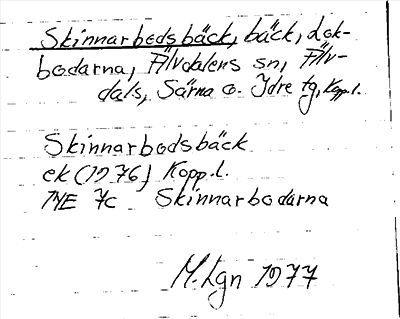 Skinnarbodsbäck, bäck, Lok-
bodarna, Älvdalens sn, Älv-
dals, Särna o. Idre tg, Kopp.l.
Skinnarbodsbäck
ek (1976) Kopp.l.
14E 7c Skinnarbodarna
M.Lgn 1977